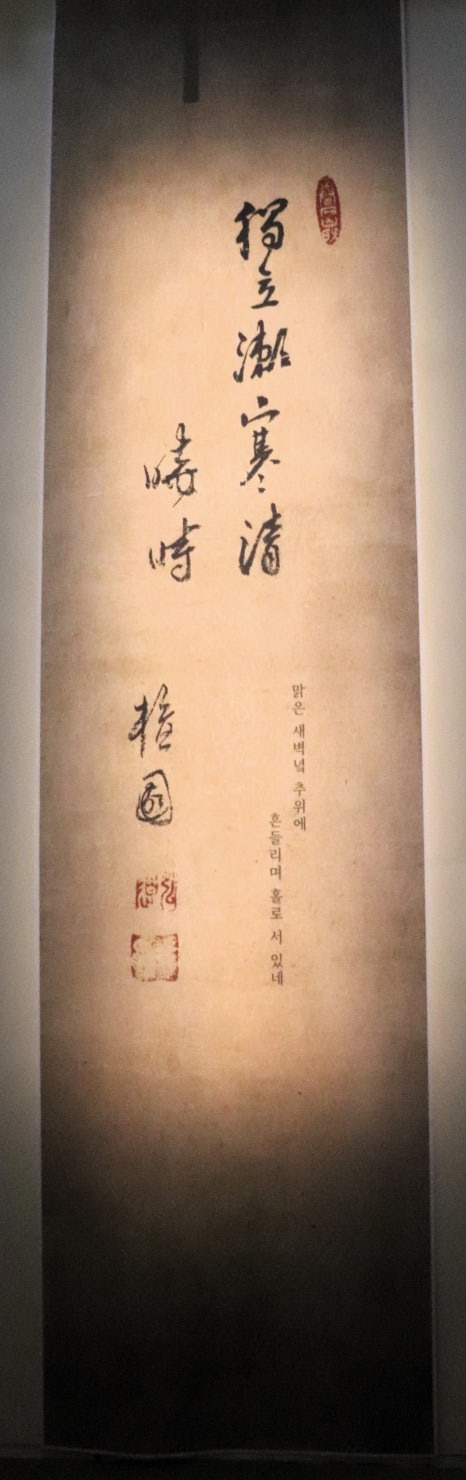 獨立寒清
맑은 새벽녘 추위에
흔들리며 홀로 서 있네
曉時
檀園